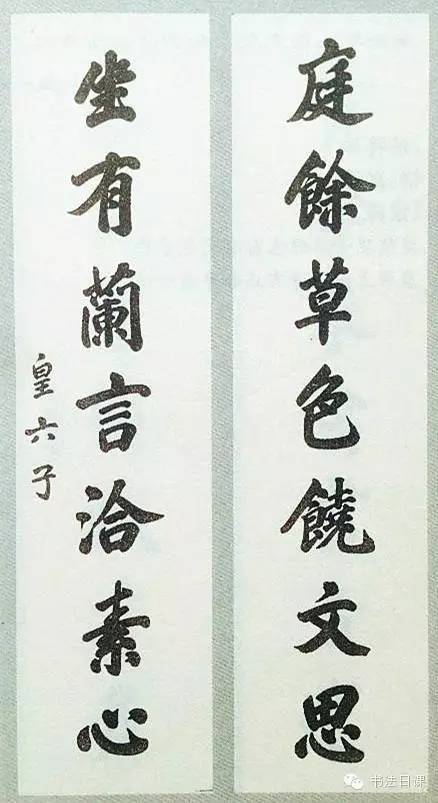 庭餘草色饒文思
坐有蘭言洽素心
皇六子
书法日课